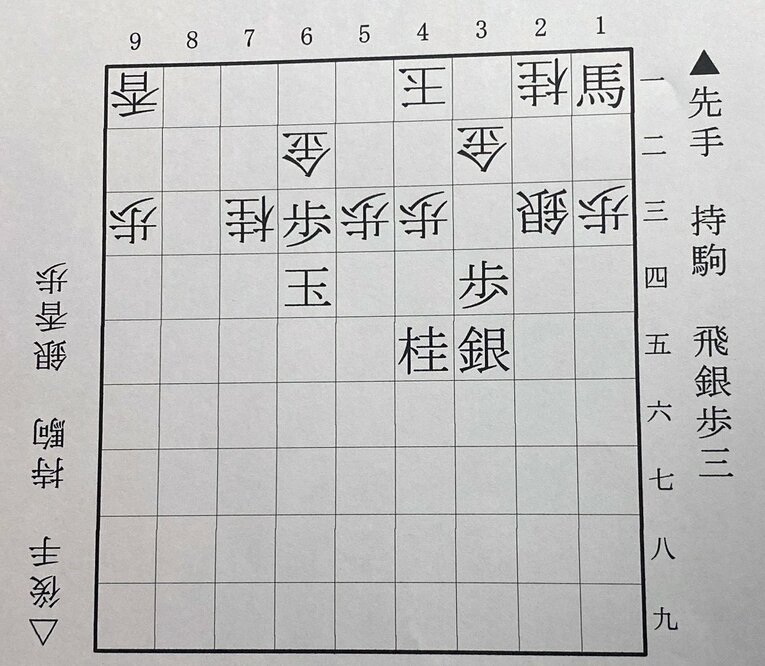 9 8 7 6 5 4 3 2 1
香 王 桂 馬 一
金 金 二
歩 桂 歩 歩 歩 銀 歩 三
玉 歩 四
桂 銀 五
六
七
八
九
▲先手 持駒 飛銀歩三
△後手 持駒 銀香歩